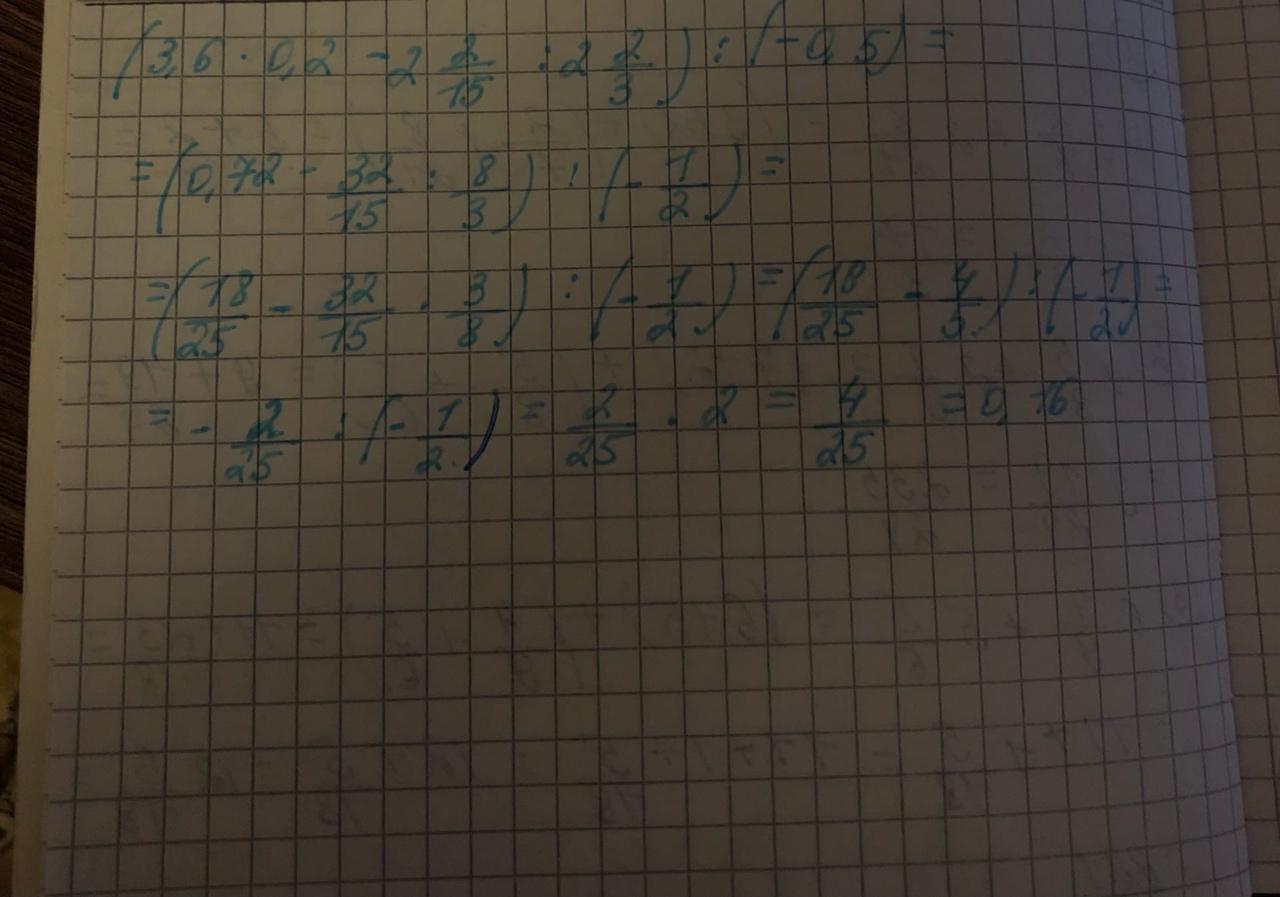 (3,6 · 0,2 - 2 2/15 : 2 2/3) : (-0,5) =
= (0,72 - 32/15 : 8/3) : (-1/2) =
= (18/25 - 32/15 · 3/8) : (-1/2) = (18/25 - 4/5) : (-1/2) =
= - 2/25 : (-1/2) = 2/25 · 2 = 4/25 = 0,16